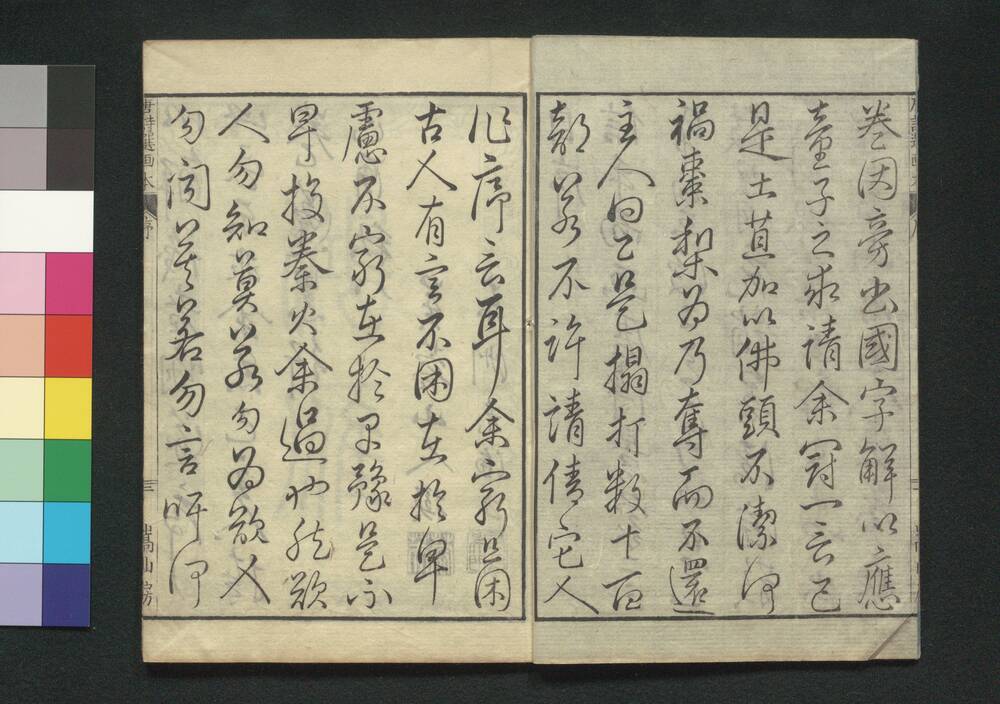 巻因旁出國字解以應
童子之求請余冠一言已
是土苴加以佛頭不潔何
禍棗梨為乃奪而不還
主人曰已是搨打数十百
部若不許請倩它人
作序云耳余窮且困
古人有言不困在於早
慮不窮在於早豫是不
早投秦火余過也然欲
人勿知莫若勿為欲人
勿聞莫若勿言吁何
唐詩選画本
序
三
嵩山房